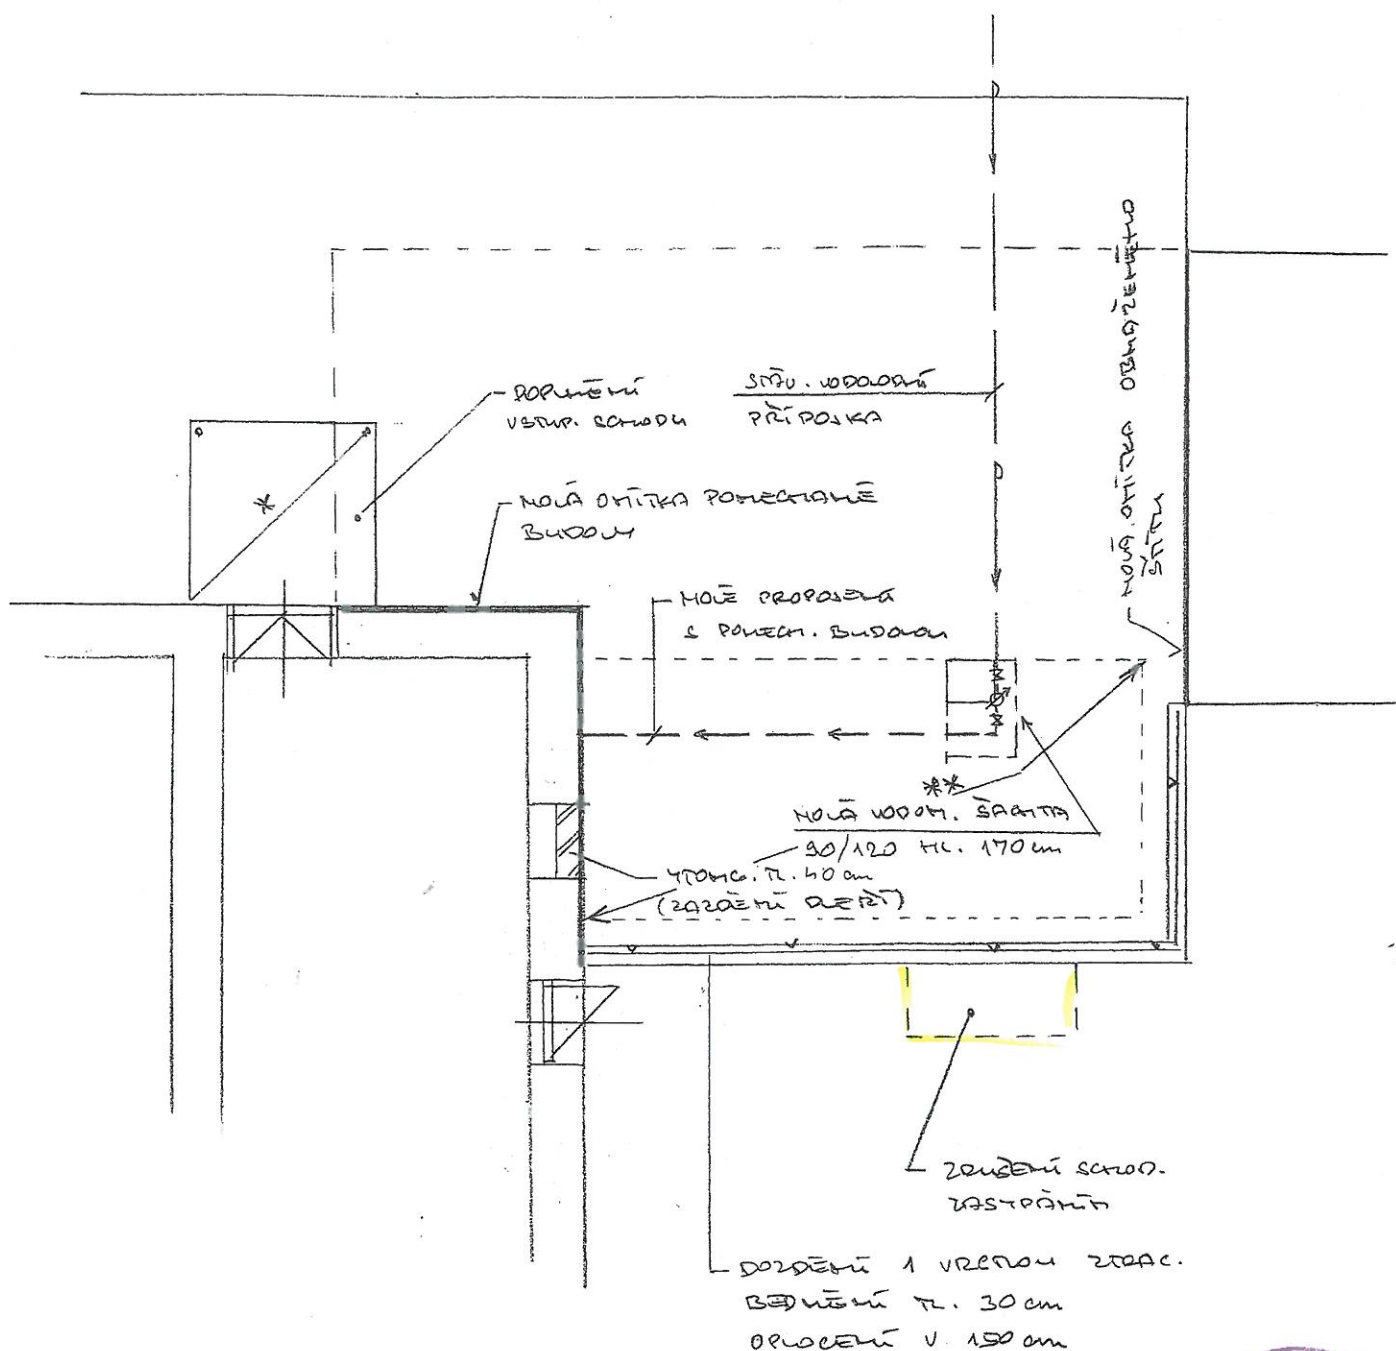 DOPLNĚNÍ
VSTUP. SCHODU
STÁV. VODOVODNÍ
PŘÍPOJKA
NOVÁ OMÍTKA OBNAŽENÉHO
ŠTÍTU
*
NOVÁ OMÍTKA PONECHANÉ
BUDOVY
NOVÉ PROPOJENÍ
S PONECH. BUDOVOU
**
NOVÁ VODOM. ŠACHTA
90/120 HL. 170 cm
YTONG. TL. 40 cm
(ZAZDĚNÍ DVEŘÍ)
ZRUŠENÍ SCHOD.
ZASYPÁNÍM
DOZDĚNÍ 1 VRSTVOU ZTRAC.
BEDNĚNÍ TL. 30 cm
OPLOCENÍ V. 150 cm